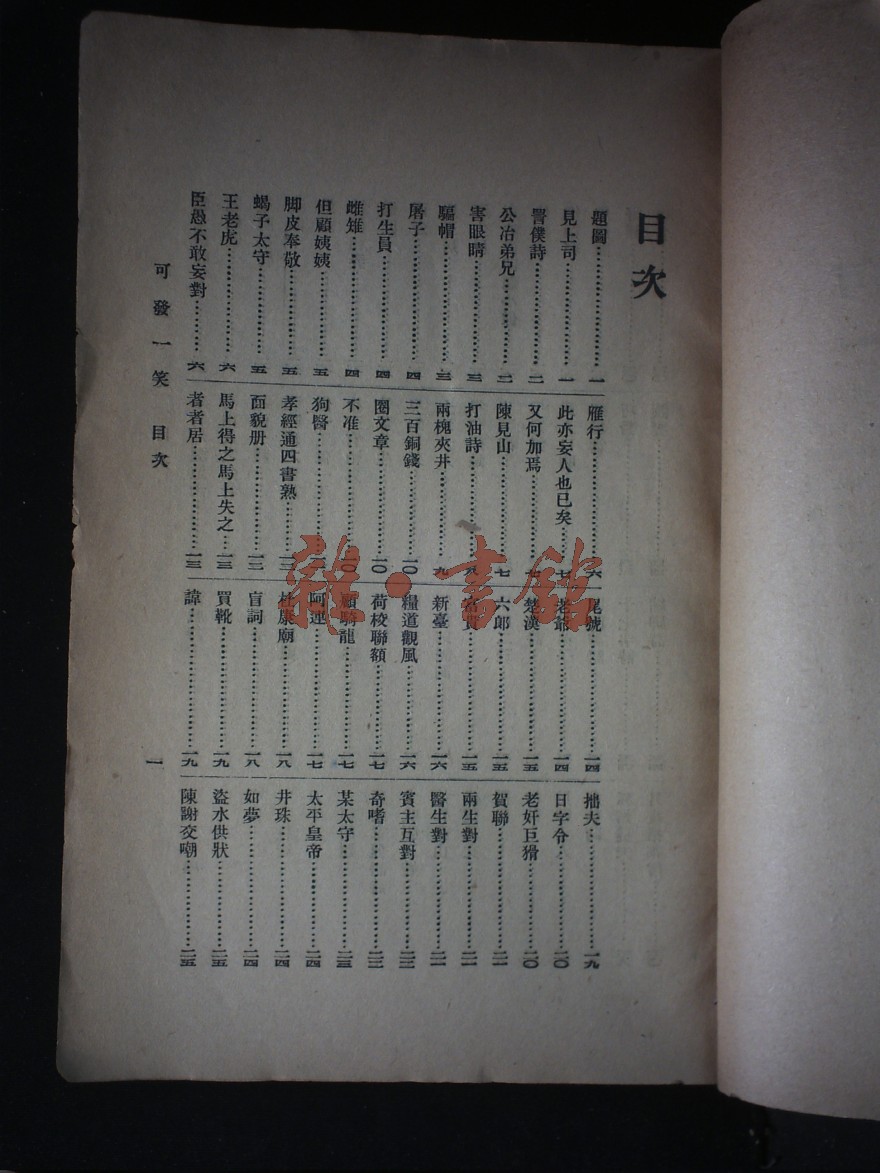 目次
題圖…………一
見上司…………一
詈僕詩…………二
公冶弟兄…………二
害眼睛…………三
騙帽…………三
屠子…………四
打生員…………四
雌雉…………四
但顧姨姨…………五
脚皮奉敬…………五
蝎子太守…………五
王老虎…………六
臣愚不敢妄對…………六
雁行…………六
此亦妄人也已矣…………七
又何加焉…………七
陳見山…………七
打油詩…………九
兩槐夾井…………九
三百銅錢…………一〇
圈文章…………一〇
不准…………一〇
狗醫…………
孝經通四書熟…………一二
面貌册…………一二
馬上得之馬上失之…一三
者者居…………一三
尾號…………一四
老爺…………一四
楚漢…………一五
六郎…………一五
富貴…………一五
新臺…………一六
糧道觀風…………一六
荷校聯額…………一七
顧騎龍…………一七
阿連…………一七
杜康廟…………一八
盲詞…………一八
買靴…………一九
諱…………一九
拙夫…………一九
日字令…………二〇
老奸巨猾…………二〇
賀聯…………二一
兩生對…………二一
醫生對…………二一
賓主互對…………二二
奇嗜…………二二
某太守…………二三
太平皇帝…………二四
井珠…………二四
如夢…………二四
盜水供狀…………二五
陳謝交嘲…………二五
可發一笑 目次
一
雜·書館